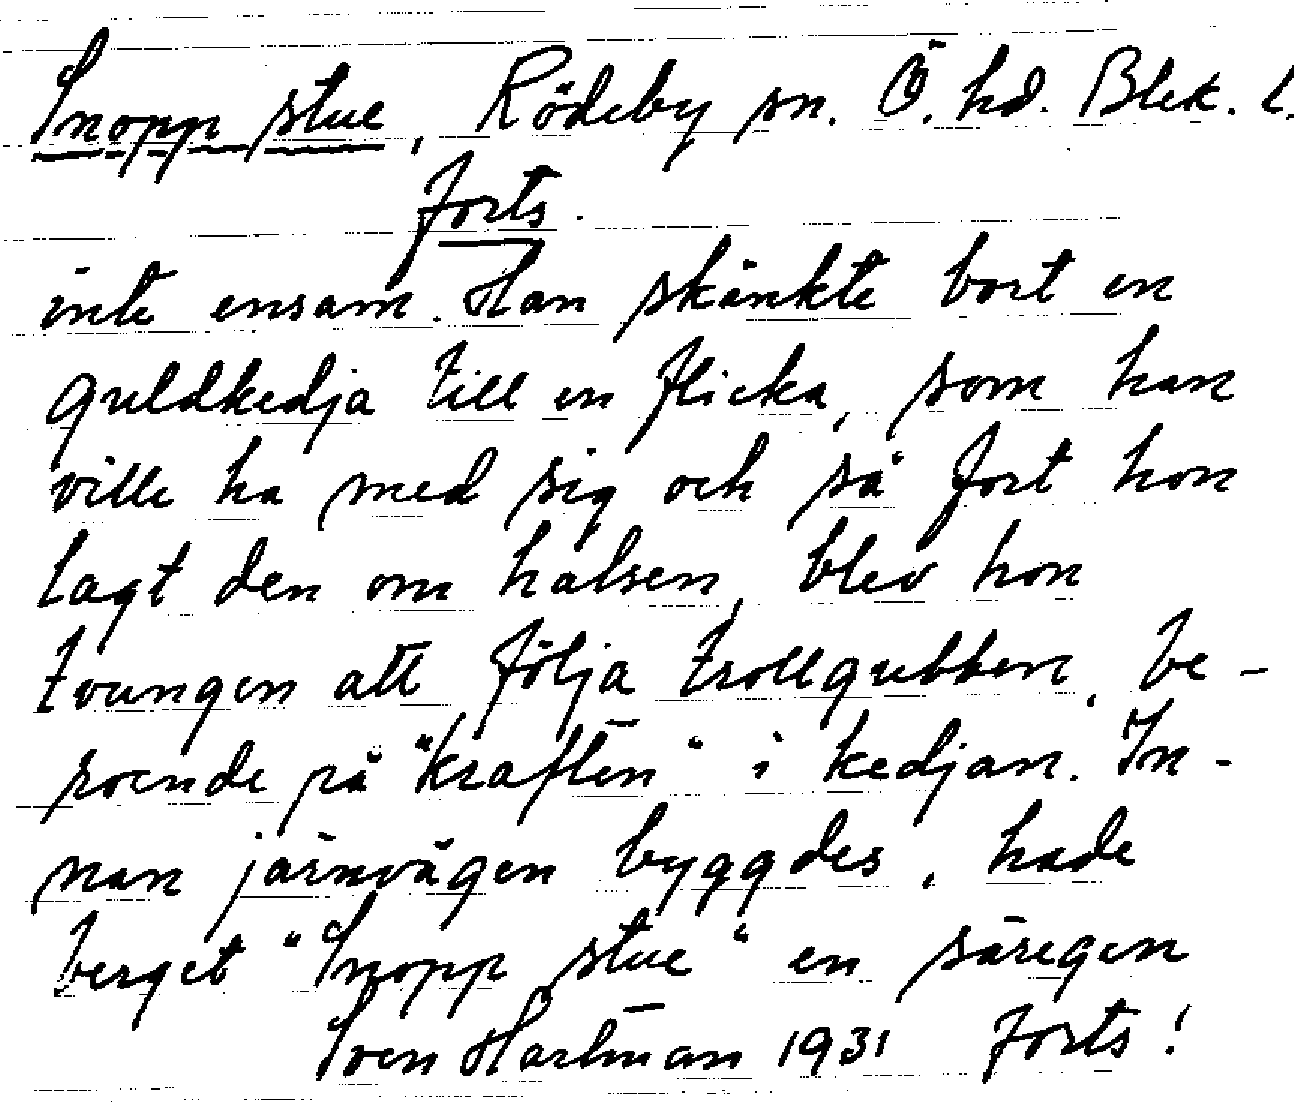 Snopp stue, Rödeby sn. Ö. hd. Blek. l.
Forts.
inte ensam. Han skänkte bort en
guldkedja till en flicka, som han
ville ha med sig och så fort hon
lagt den om halsen, blev hon
tvungen att följa trollgubben, be-
roende på "kraften" i kedjan. In-
nan järnvägen byggdes, hade
berget "Snopp stue" en säregen
Sven Hartman 1931 Forts!